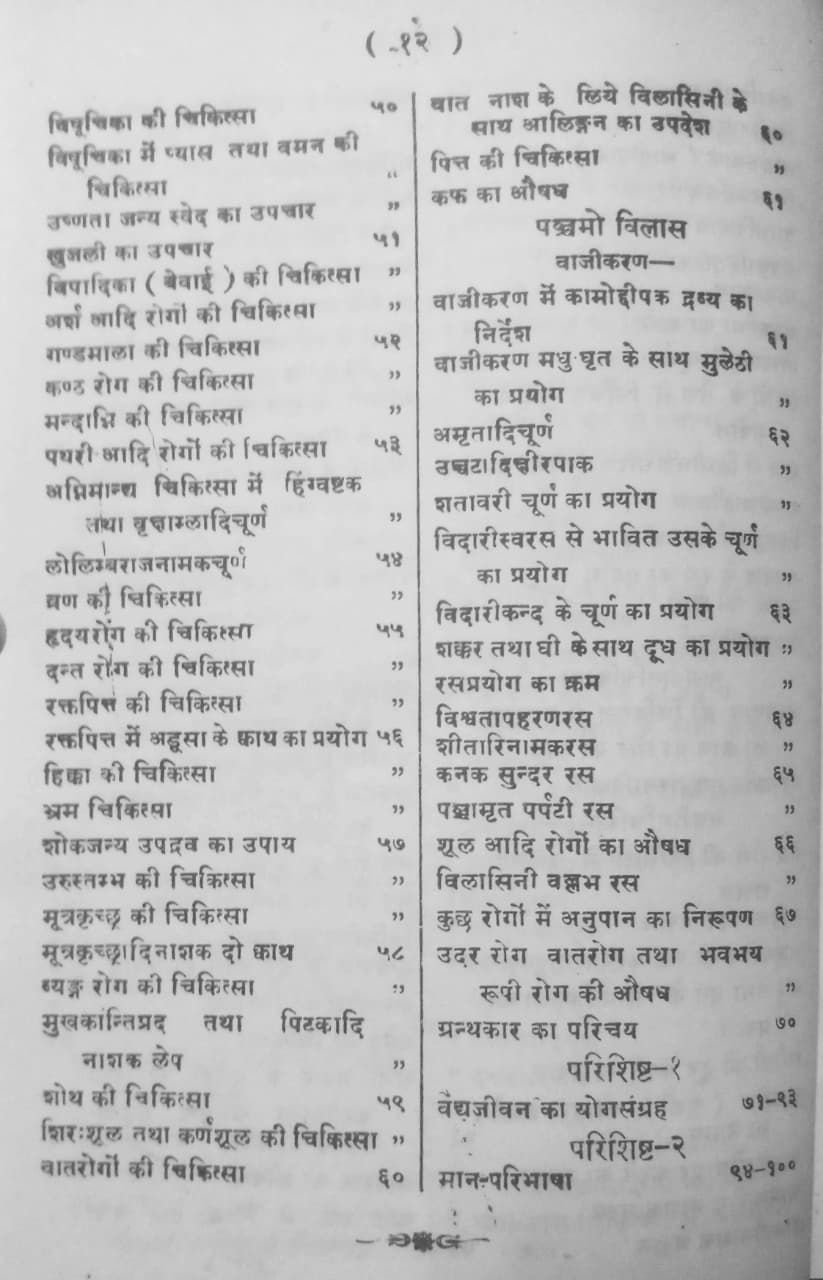 ( १२ )
विषूचिका की चिकित्सा ५०
विषूचिका में प्यास तथा वमन की
चिकित्सा ,,
उष्णता जन्य स्वेद का उपचार ”
खुजली का उपचार ५१
विपादिका ( बेवाई ) की चिकित्सा ”
अर्श आदि रोगों की चिकित्सा ”
गण्डमाला की चिकित्सा ५२
कण्ठ रोग की चिकित्सा ”
मन्दाग्नि की चिकित्सा ”
पथरी आदि रोगों की चिकित्सा ५३
अग्निमान्द्य चिकित्सा में हिंग्वष्टक
तथा वृक्षाम्लादिचूर्ण ”
लोलिम्बराजनामकचूर्ण ५४
व्रण की चिकित्सा ”
हृदयरोग की चिकित्सा ५५
दन्त रोग की चिकित्सा ”
रक्तपित्त की चिकित्सा ”
रक्तपित्त में अडूसा के क्वाथ का प्रयोग ५६
हिक्का की चिकित्सा ”
भ्रम चिकित्सा ”
शोकजन्य उपद्रव का उपाय ५७
उरुस्तम्भ की चिकित्सा ”
मूत्रकृच्छ्र की चिकित्सा ”
मूत्रकृच्छ्रादिनाशक दो क्वाथ ५८
व्यङ्ग रोग की चिकित्सा ”
मुखकान्तिप्रद तथा पिटकादि
नाशक लेप ”
शोथ की चिकित्सा ५९
शिरःशूल तथा कर्णशूल की चिकित्सा ”
वातरोगों की चिकित्सा ६०
वात नाश के लिये विलासिनी के
साथ आलिङ्गन का उपदेश ६०
पित्त की चिकित्सा ”
कफ का औषध ६१
पञ्चमो विलास
वाजीकरण—
वाजीकरण में कामोद्दीपक द्रव्य का
निर्देश ६१
वाजीकरण मधु घृत के साथ मुलेठी
का प्रयोग ”
अमृतादिचूर्ण ६२
उच्चटादिक्षीरपाक ”
शतावरी चूर्ण का प्रयोग ”
विदारीस्वरस से भावित उसके चूर्ण
का प्रयोग ”
विदारीकन्द के चूर्ण का प्रयोग ६३
शक्कर तथा घी के साथ दूध का प्रयोग ”
रसप्रयोग का क्रम ”
विश्वतापहरणरस ६४
शीतारिनामकरस ”
कनक सुन्दर रस ६५
पञ्चामृत पर्पटी रस ”
शूल आदि रोगों का औषध ६६
विलासिनी वल्लभ रस ”
कुछ रोगों में अनुपान का निरूपण ६७
उदर रोग वातरोग तथा भवभय
रूपी रोग की औषध ”
ग्रन्थकार का परिचय ७०
परिशिष्ट-१
वैद्यजीवन का योगसंग्रह ७१-९३
परिशिष्ट-२
मान-परिभाषा ९४-१००